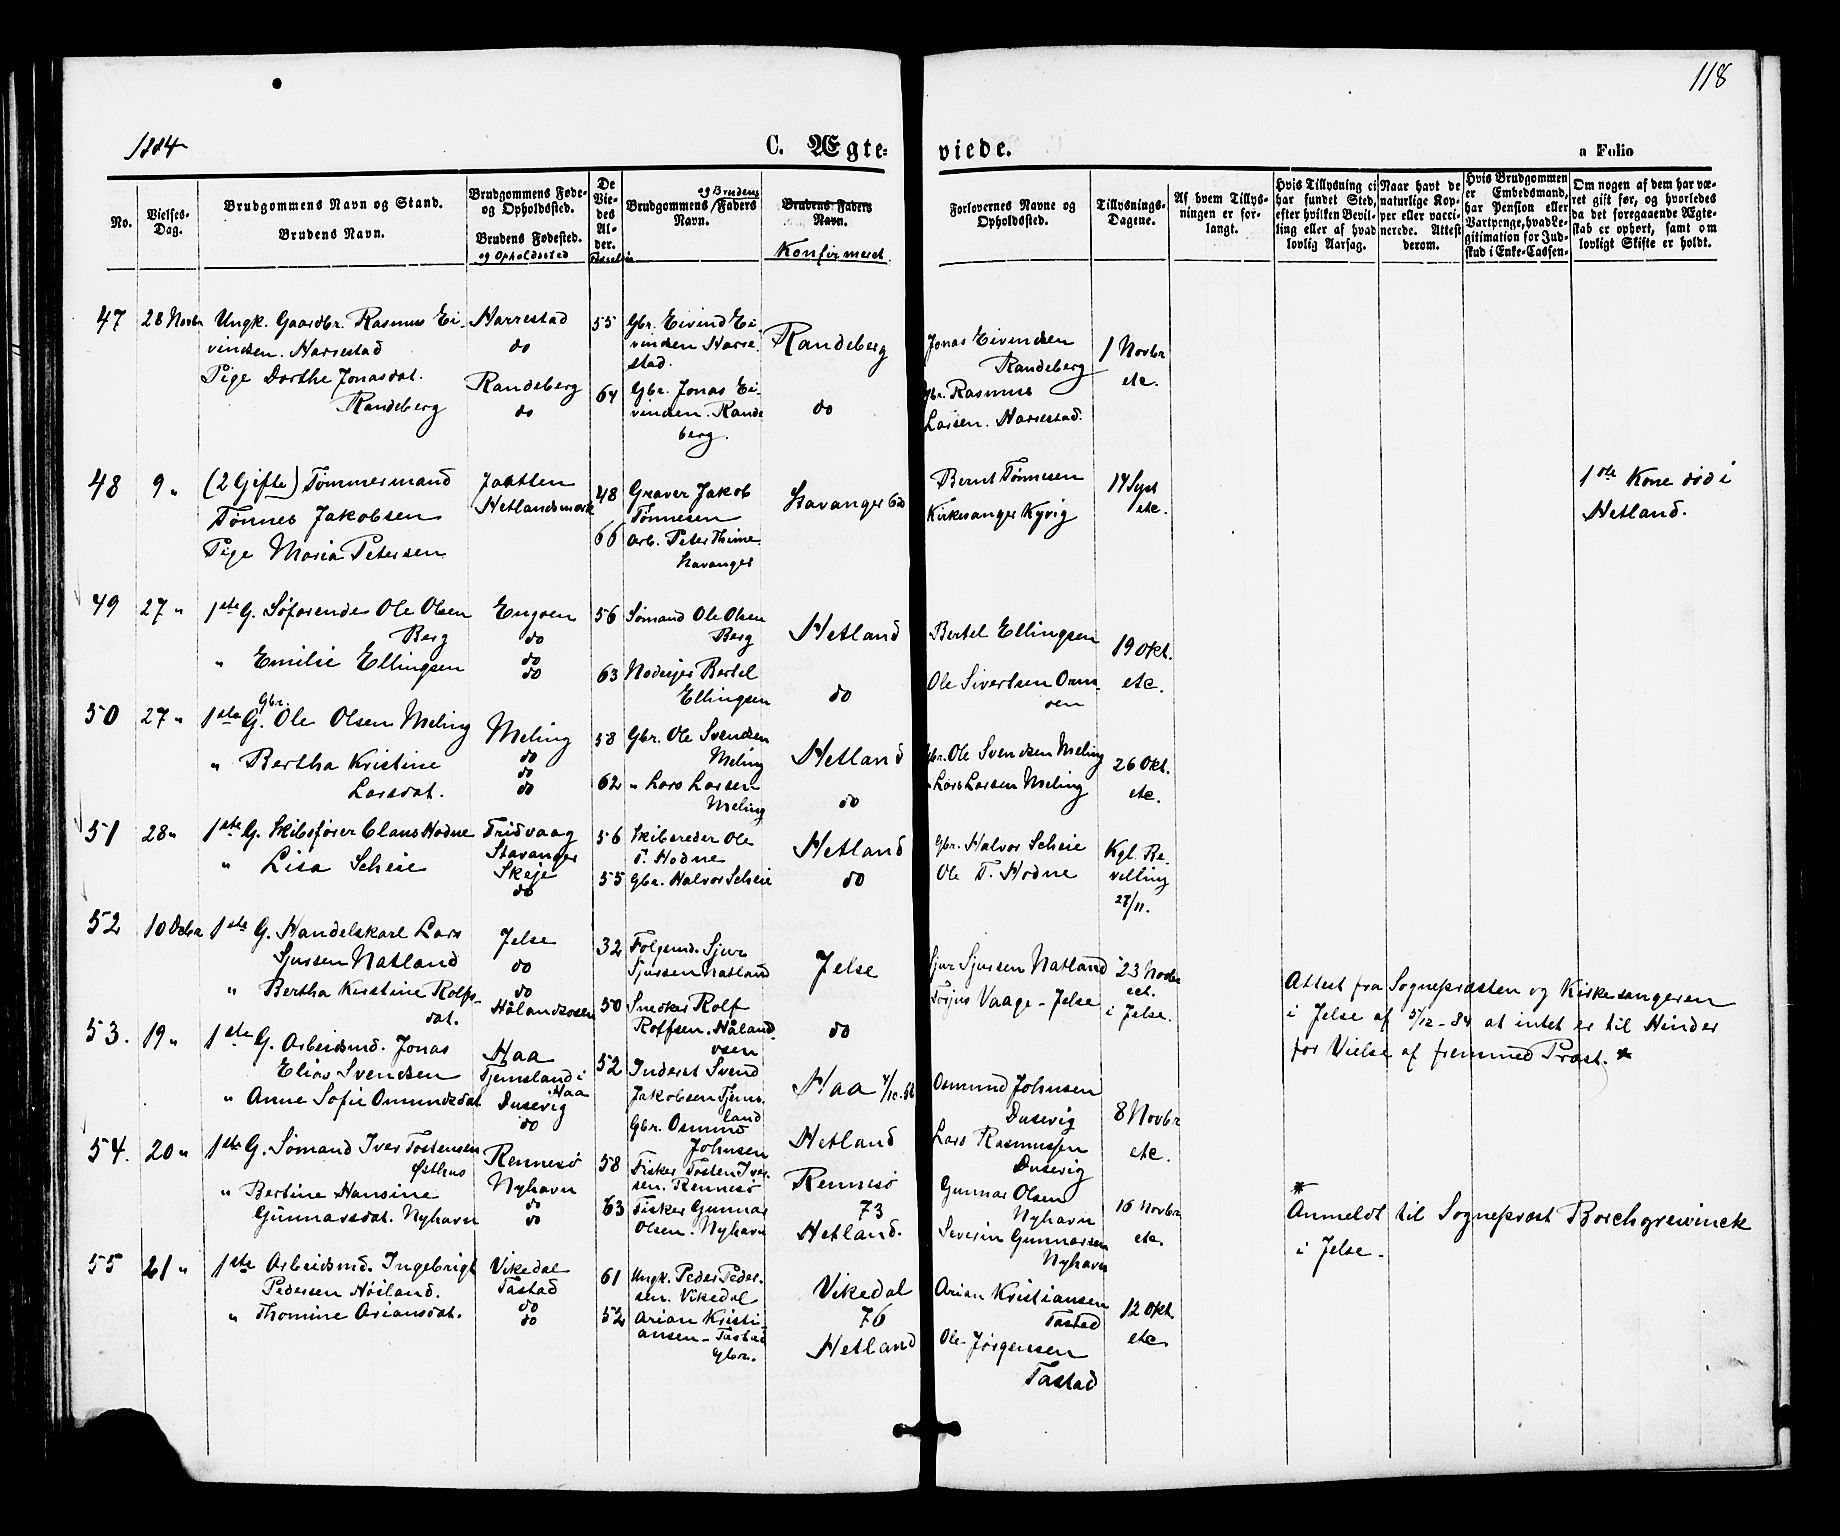 118
1884
C. Ægte-
viede.
a Folio
No.
Vielses-
Dag.
Brudgommens Navn og Stand.
Brudens Navn.
Brudgommens Føde-
og Opholdssted.
Brudens Fødested.
og Opholdssted
De
Vie-
des
Al-
der.
og Brudens
Brudgommens Faders
Navn.
Brudens Faders
Navn.
Konfirmeret.
Forlovernes Navne og
Opholdssted.
Tillysnings-
Dagene.
Af hvem Tillys-
ningen er for-
langt.
Hvis Tillysning ei
har fundet Sted,
efter hvilken Bevil-
ling eller af hvad
lovlig Aarsag.
Naar havt de
naturlige Kop-
per eller vacci-
nerede. Attest
derom.
Hvis Brudgommen
er Embedsmand,
har Pension eller
Vartpenge, hvad Le-
gitimation for Ind-
skud i Enke-Cassen.
Om nogen af dem har væ-
ret gift før, og hvorledes
da det foregaaende Ægte-
skab er ophørt, samt om
lovligt Skifte er holdt.
47 28 Novbr Ungk. Gaardbr. Rasmus Ei-
vindsen. Harestad
Pige Dorthe Jonasdat.
Randeberg
Harrestad
do
Randeberg
do
55
64
Gbr. Eivind Ei-
vindsen Harre-
stad.
Gbr. Jonas Ei-
vindsen. Rande
berg.
Randeberg
do
Jonas Eivindsen
Randeberg
Gbr. Rasmus
Larsen. Harrestad.
1 Novbr
etc.
48 9 " (2 Gifte) Tømmermand
Tønnes Jakobsen
Pige Maria Petersen
Jaatten
Hetlandsmark
48
66
Graver Jakob
Tønnesen
Arb. Peter Thime
Stavanger
Stavanger 63
Bernt Tønnesen
Kirkesanger Kyvig
14 Sept
etc.
1ste Kone død i
Hetland.
49 27 " 1ste G. Søfarende Ole Olsen
Berg
" Emilie Ellingsen
Engøen
do
do
do
56
63
Sømand Ole Olsen
Berg
Nodesjer Bertel
Ellingsen
Hetland
do
Bertel Ellingsen
Ole Sivertsen Orm-
øen
19 Okt.
etc.
50 27 " 1ste G. Gbr. Ole Olsen Meling
" Bertha Kristine
Larsdat.
Meling
do
do
do
58
62
Gbr. Ole Svendsen
Meling
" Lars Larsen
Meling
Hetland
do
Gbr. Ole Svendsen Meling
" Lars Larsen Meling
26 Okt.
etc.
51 28 " 1ste G. Skibsfører Claus Hodne
" Lisa Scheie
Tridvaag
Stavanger
Skeje
do
56
55
Skibsreder Ole
T. Hodne
Gbr. Halvor Scheie
Hetland
do
Gbr. Halvor Scheie
Ole T. Hodne
Kgl. Be-
villing
27/11.
52 10 Decbr 1ste G. Handelskarl Lars
Sjursen Natland
" Bertha Kristine Rolfs-
dat.
Jelse
do
do
Hålandsosen
32
50
Folgemd. Sjur
Sjursen Natland
Snedker Rolf
Rolfsen. Håland
osen
Jelse
do
Sjur Sjursen Natland
Torjus Vaage - Jelse
23 Novbr
ect.
i Jelse.
Attest fra Sognepræsten og Kirkesangeren
i Jelse af 5/12 - 84 at intet er til Hinder
for Vielse af fremmed Præst. *
53. 19 " 1ste G. Arbeidsmd. Jonas
Elias Svendsen
" Anne Sofie Osmundsdat
Haa
Tjemsland i
Haa
Dusevig
do
52
Inderst Svend
Jakobsen Tjems-
land
Gbr. Osmund
Johnsen
Haa
Hetland
Osmund Johnsen
Dusevig
Lars Rasmussen
Dusevig
8 Novbr
etc.
54. 20 " 1ste G. Sømand Iver Tostensen
" Bertine Hansine
Gunnarsdat. Nyhavn
Rennesø
Nyhavn
do
do
58
63
Fisker Tosten Iver-
sen. Rennesø
Fisker Gunnar
Olsen. Nyhavn
Rennesø
73
Hetland.
Gunnar Olsen
Nyhavn
Severin Gunnarsen
Nyhavn
16 Novbr
etc.
*
Anmeldt til Sognepræst Borchgrewinck
i Jelse.
55 21 " 1ste Arbeidsmd. Ingebrigt
Pedersen Høiland.
" Thomine Ariansdat.
Vikedal
Tastad
do
do
61
52
Ungk. Peder Peder-
sen. Vikedal
Arian Kristi-
ansen - Tastad
Gbr.
Vikedal
76
Hetland
Arian Kristiansen
Tastad
Ole Jørgensen
Tastad
12 Okt.
etc.